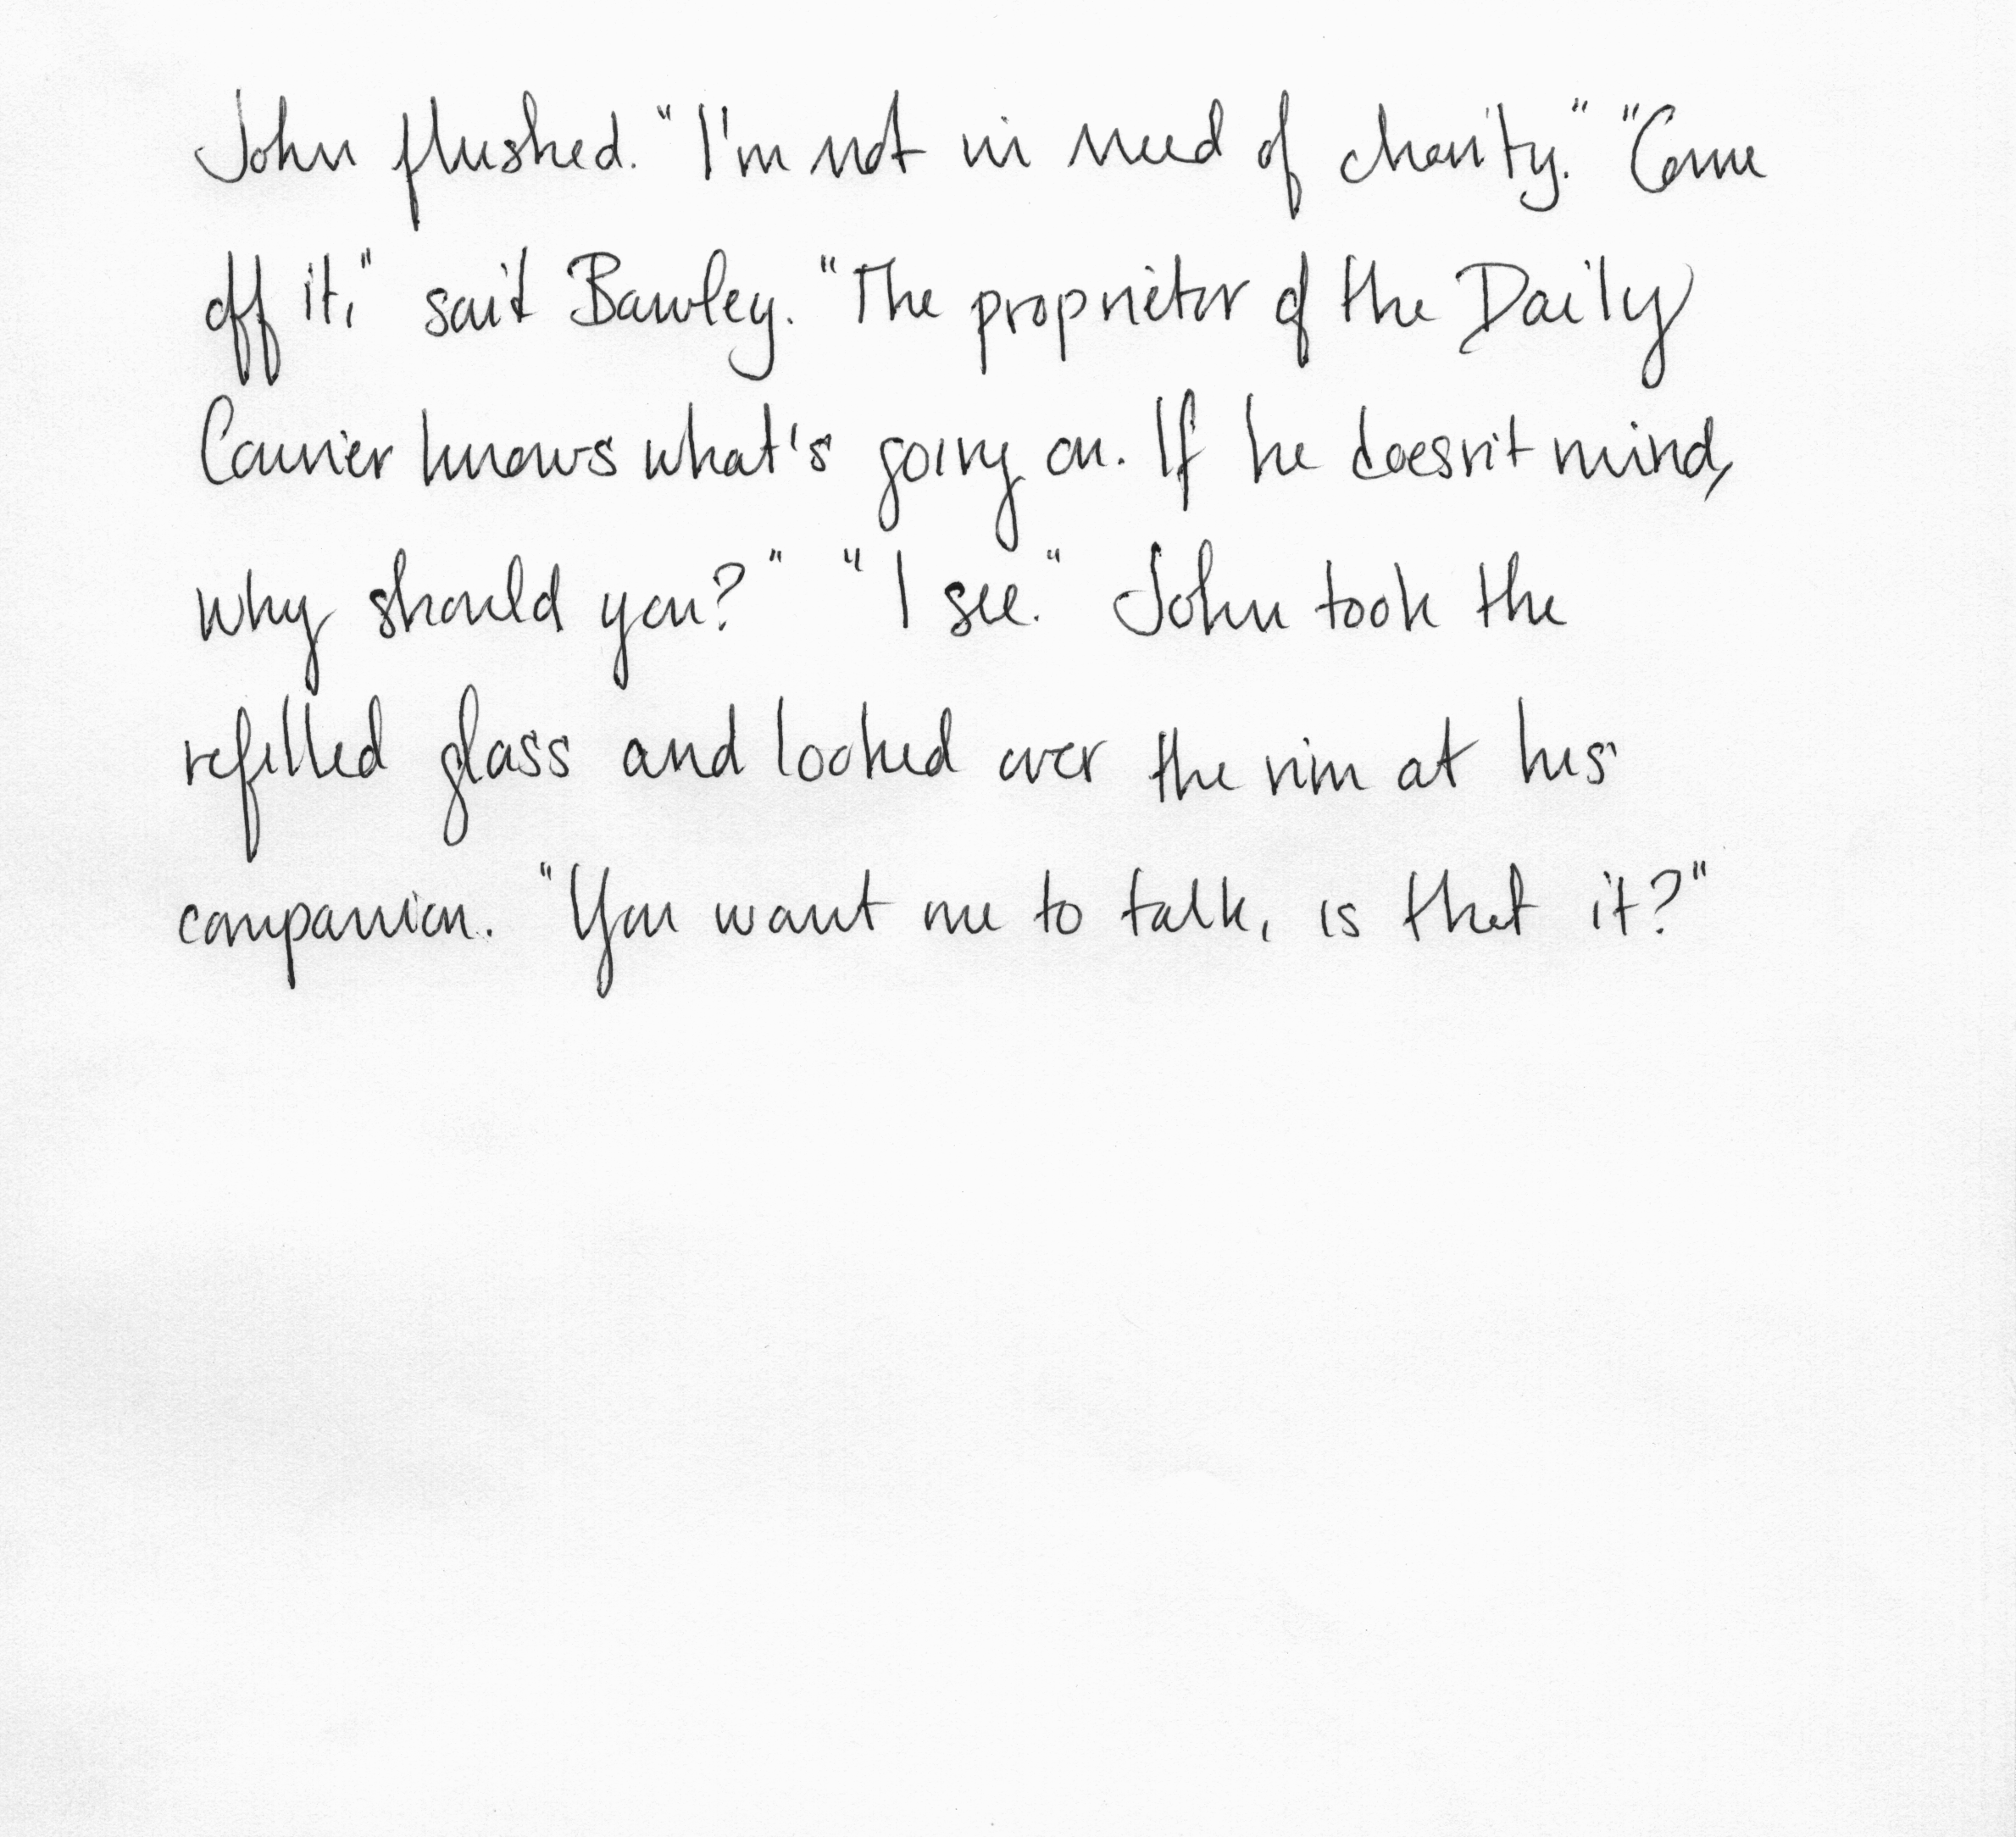 John flushed. "I'm not in need of charity." "Come
off it," said Bawley. "The proprietor of the Daily
Courier knows what's going on. If he doesn't mind,
why should you?" "I see." John took the
refilled glass and looked over the rim at his
companion. "You want me to talk, is that it?"